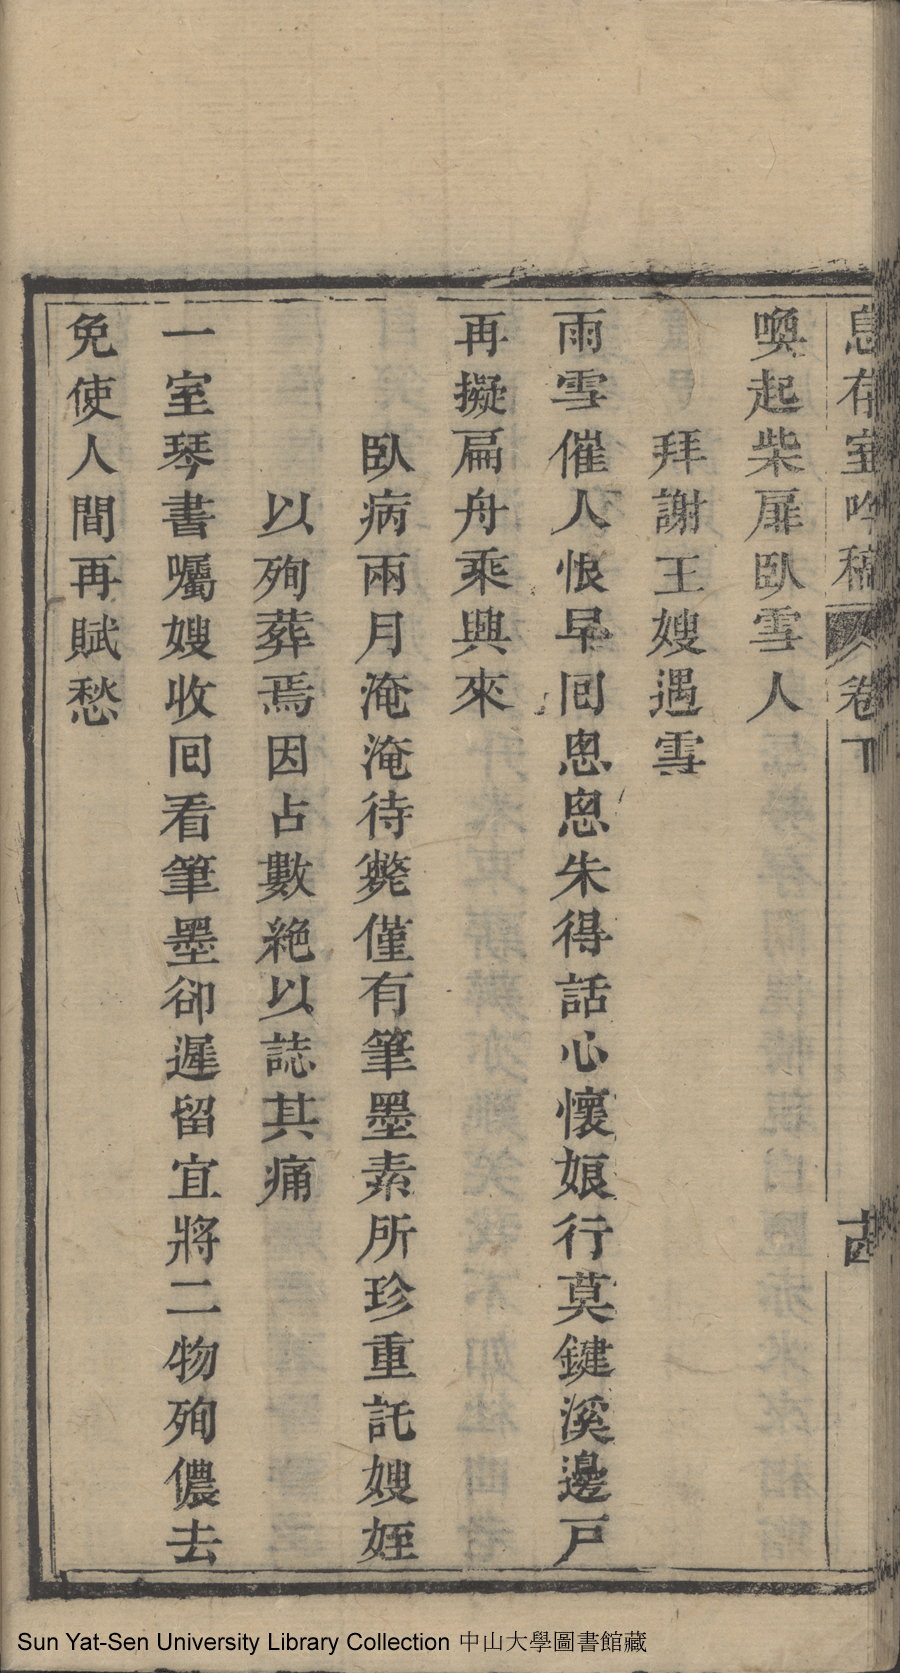 息存室吟稿 卷下 十四
喚起柴扉臥雪人
拜謝王嫂遇雪
雨雪催人恨早回悤悤未得話心懷娘行莫鍵溪邊戶
再擬扁舟乘興來
臥病兩月淹淹待斃僅有筆墨素所珍重託嫂姪
以殉葬焉因占數絶以誌其痛
一室琴書囑嫂收回看筆墨卻遲留宜將二物殉儂去
免使人間再賦愁
Sun Yat-Sen University Library Collection 中山大學圖書館藏